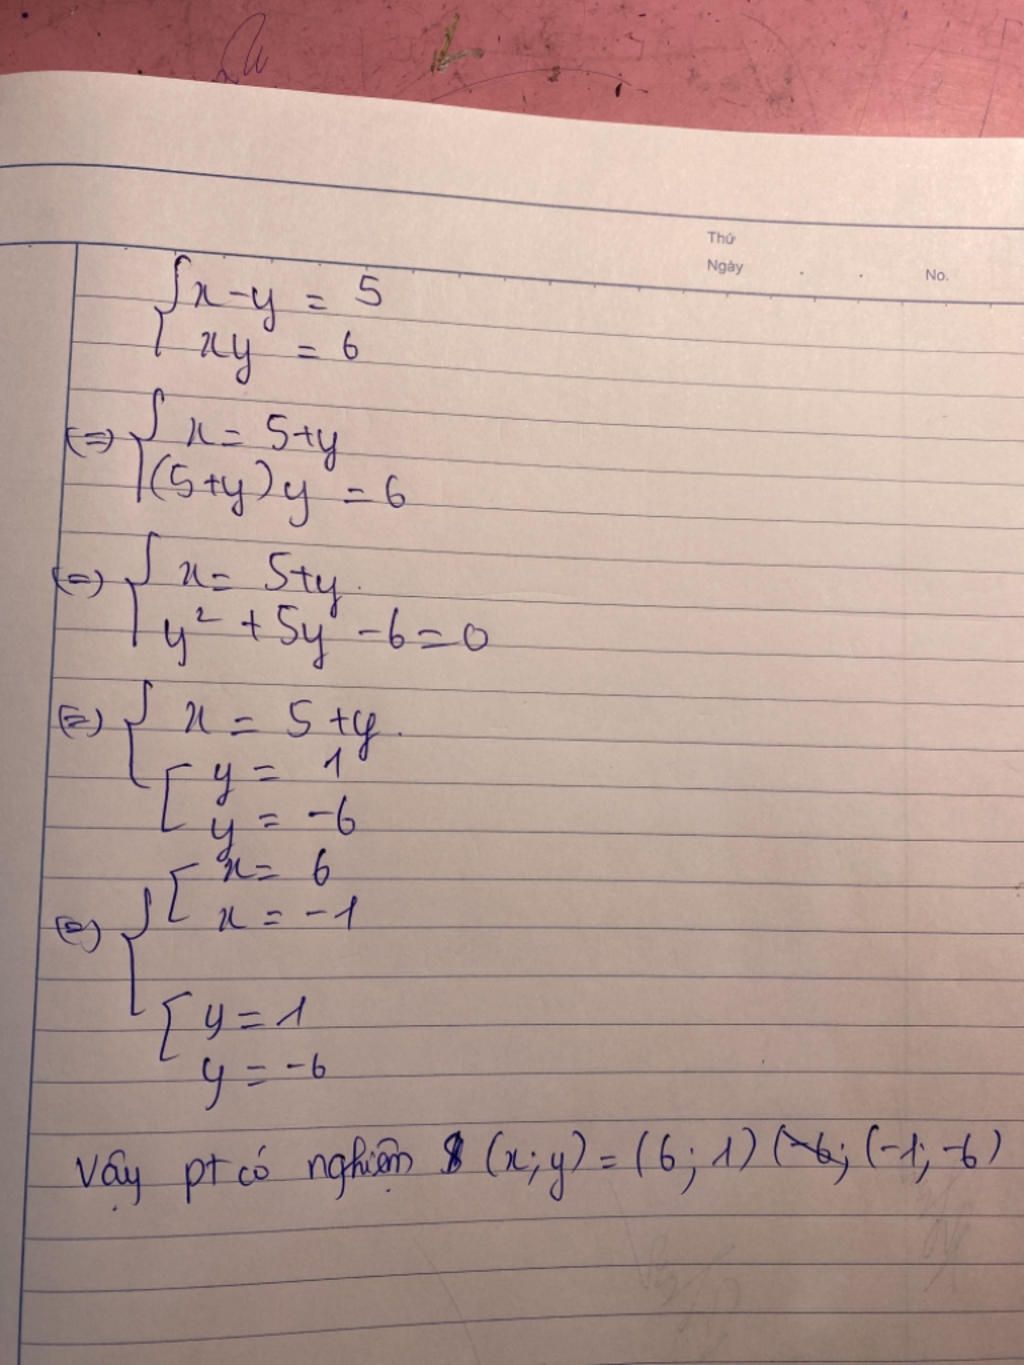 Thứ
Ngày . . No.
x-y = 5
xy = 6
(=) x= 5+y
(5+y)y = 6
(=) x= 5+y.
y² + 5y -6=0
(=) x = 5+y.
y = 1
y = -6
x= 6
(=) x = -1
y = 1
y = -6
Vậy pt có nghiệm (x;y) = (6; 1) (-6; (-1; -6)